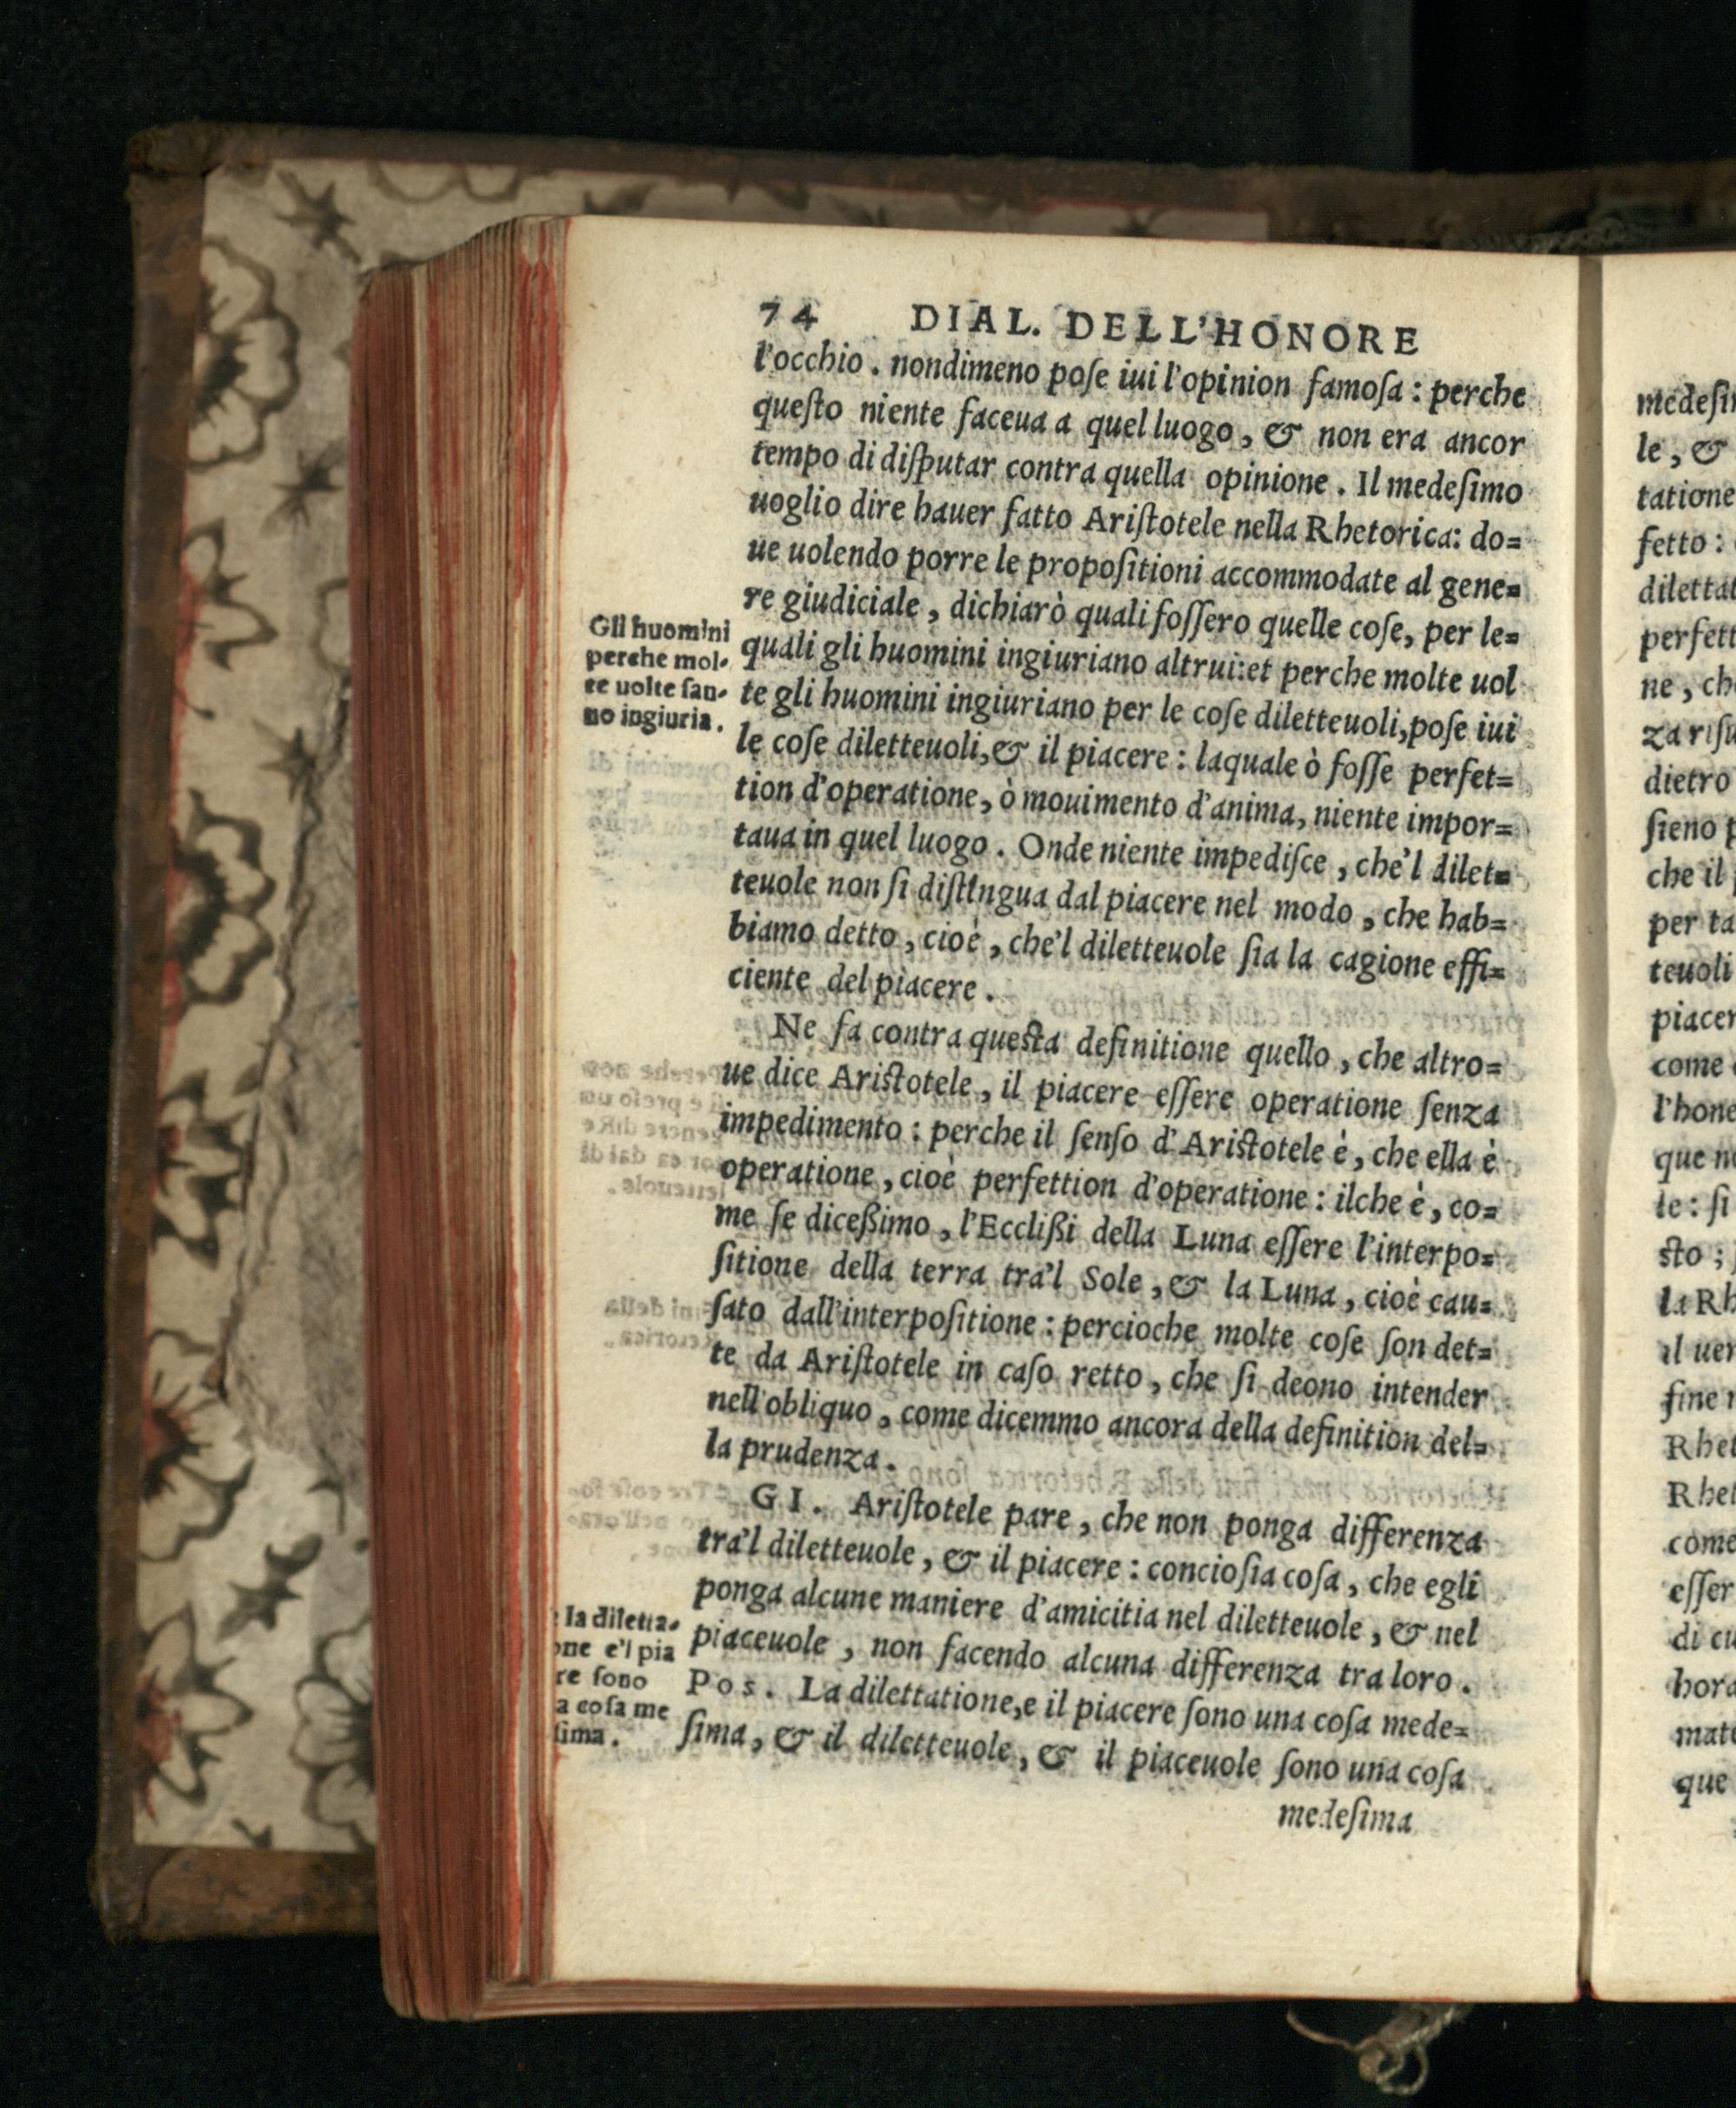 74 DIAL. DELL'HONORE
l'occhio. nondimeno poſe iui l'opinion famoſa: perche
queſto niente faceua a quel luogo, & non era ancor
tempo di diſputar contra quella opinione. Il medeſimo
uoglio dire hauer fatto Ariſtotele nella Rhetorica: do=
ue uolendo porre le propoſitioni accommodate al gene=
re giudiciale, dichiarò quali foſſero quelle coſe, per le=
quali gli huomini ingiuriano altrui: et perche molte uol
te gli huomini ingiuriano per le coſe diletteuoli, poſe iui
le coſe diletteuoli, & il piacere: laquale ò foſſe perfet=
tion d'operatione, ò mouimento d'anima, niente impor=
taua in quel luogo. Onde niente impediſce, che'l dilet=
teuole non ſi diſtingua dal piacere nel modo, che hab=
biamo detto, cioè, che'l diletteuole ſia la cagione effi=
ciente del piacere.
Ne fa contra queſta definitione quello, che altro=
ue dice Ariſtotele, il piacere eſſere operatione ſenza
impedimento: perche il ſenſo d'Ariſtotele è, che ella è
operatione, cioè perfettion d'operatione: ilche è, co=
me ſe diceßimo, l'Eccliſſi della Luna eſſere l'interpo=
ſitione della terra tra'l Sole, & la Luna, cioè cau=
ſato dall'interpoſitione: percioche molte coſe ſon det=
te da Ariſtotele in caſo retto, che ſi deono intender
nell'obliquo, come dicemmo ancora della definition del=
la prudenza.
GI. Ariſtotele pare, che non ponga differenza
tra'l diletteuole, & il piacere: concioſia coſa, che egli
ponga alcune maniere d'amicitia nel diletteuole, & nel
piaceuole, non facendo alcuna differenza tra loro.
Pos. La dilettatione, e il piacere ſono una coſa mede=
ſima, & il diletteuole, & il piaceuole ſono una coſa
medeſima
Gli huomini
perche mol-
te uolte fan-
no ingiuria.
la diletta-
one e'l pia
re ſono
a coſa me
ſima.
medeſi
le, &
tatione
fetto:
diletta
perfett
ne, ch
za riſu
dietro
ſieno p
che il
per ta
teuoli
piacer
come
l'hone
que n
le: ſi
ſto;
la Rh
il uer
fine
Rhet
Rhet
come
eſſer
di cu
hora
mate
que